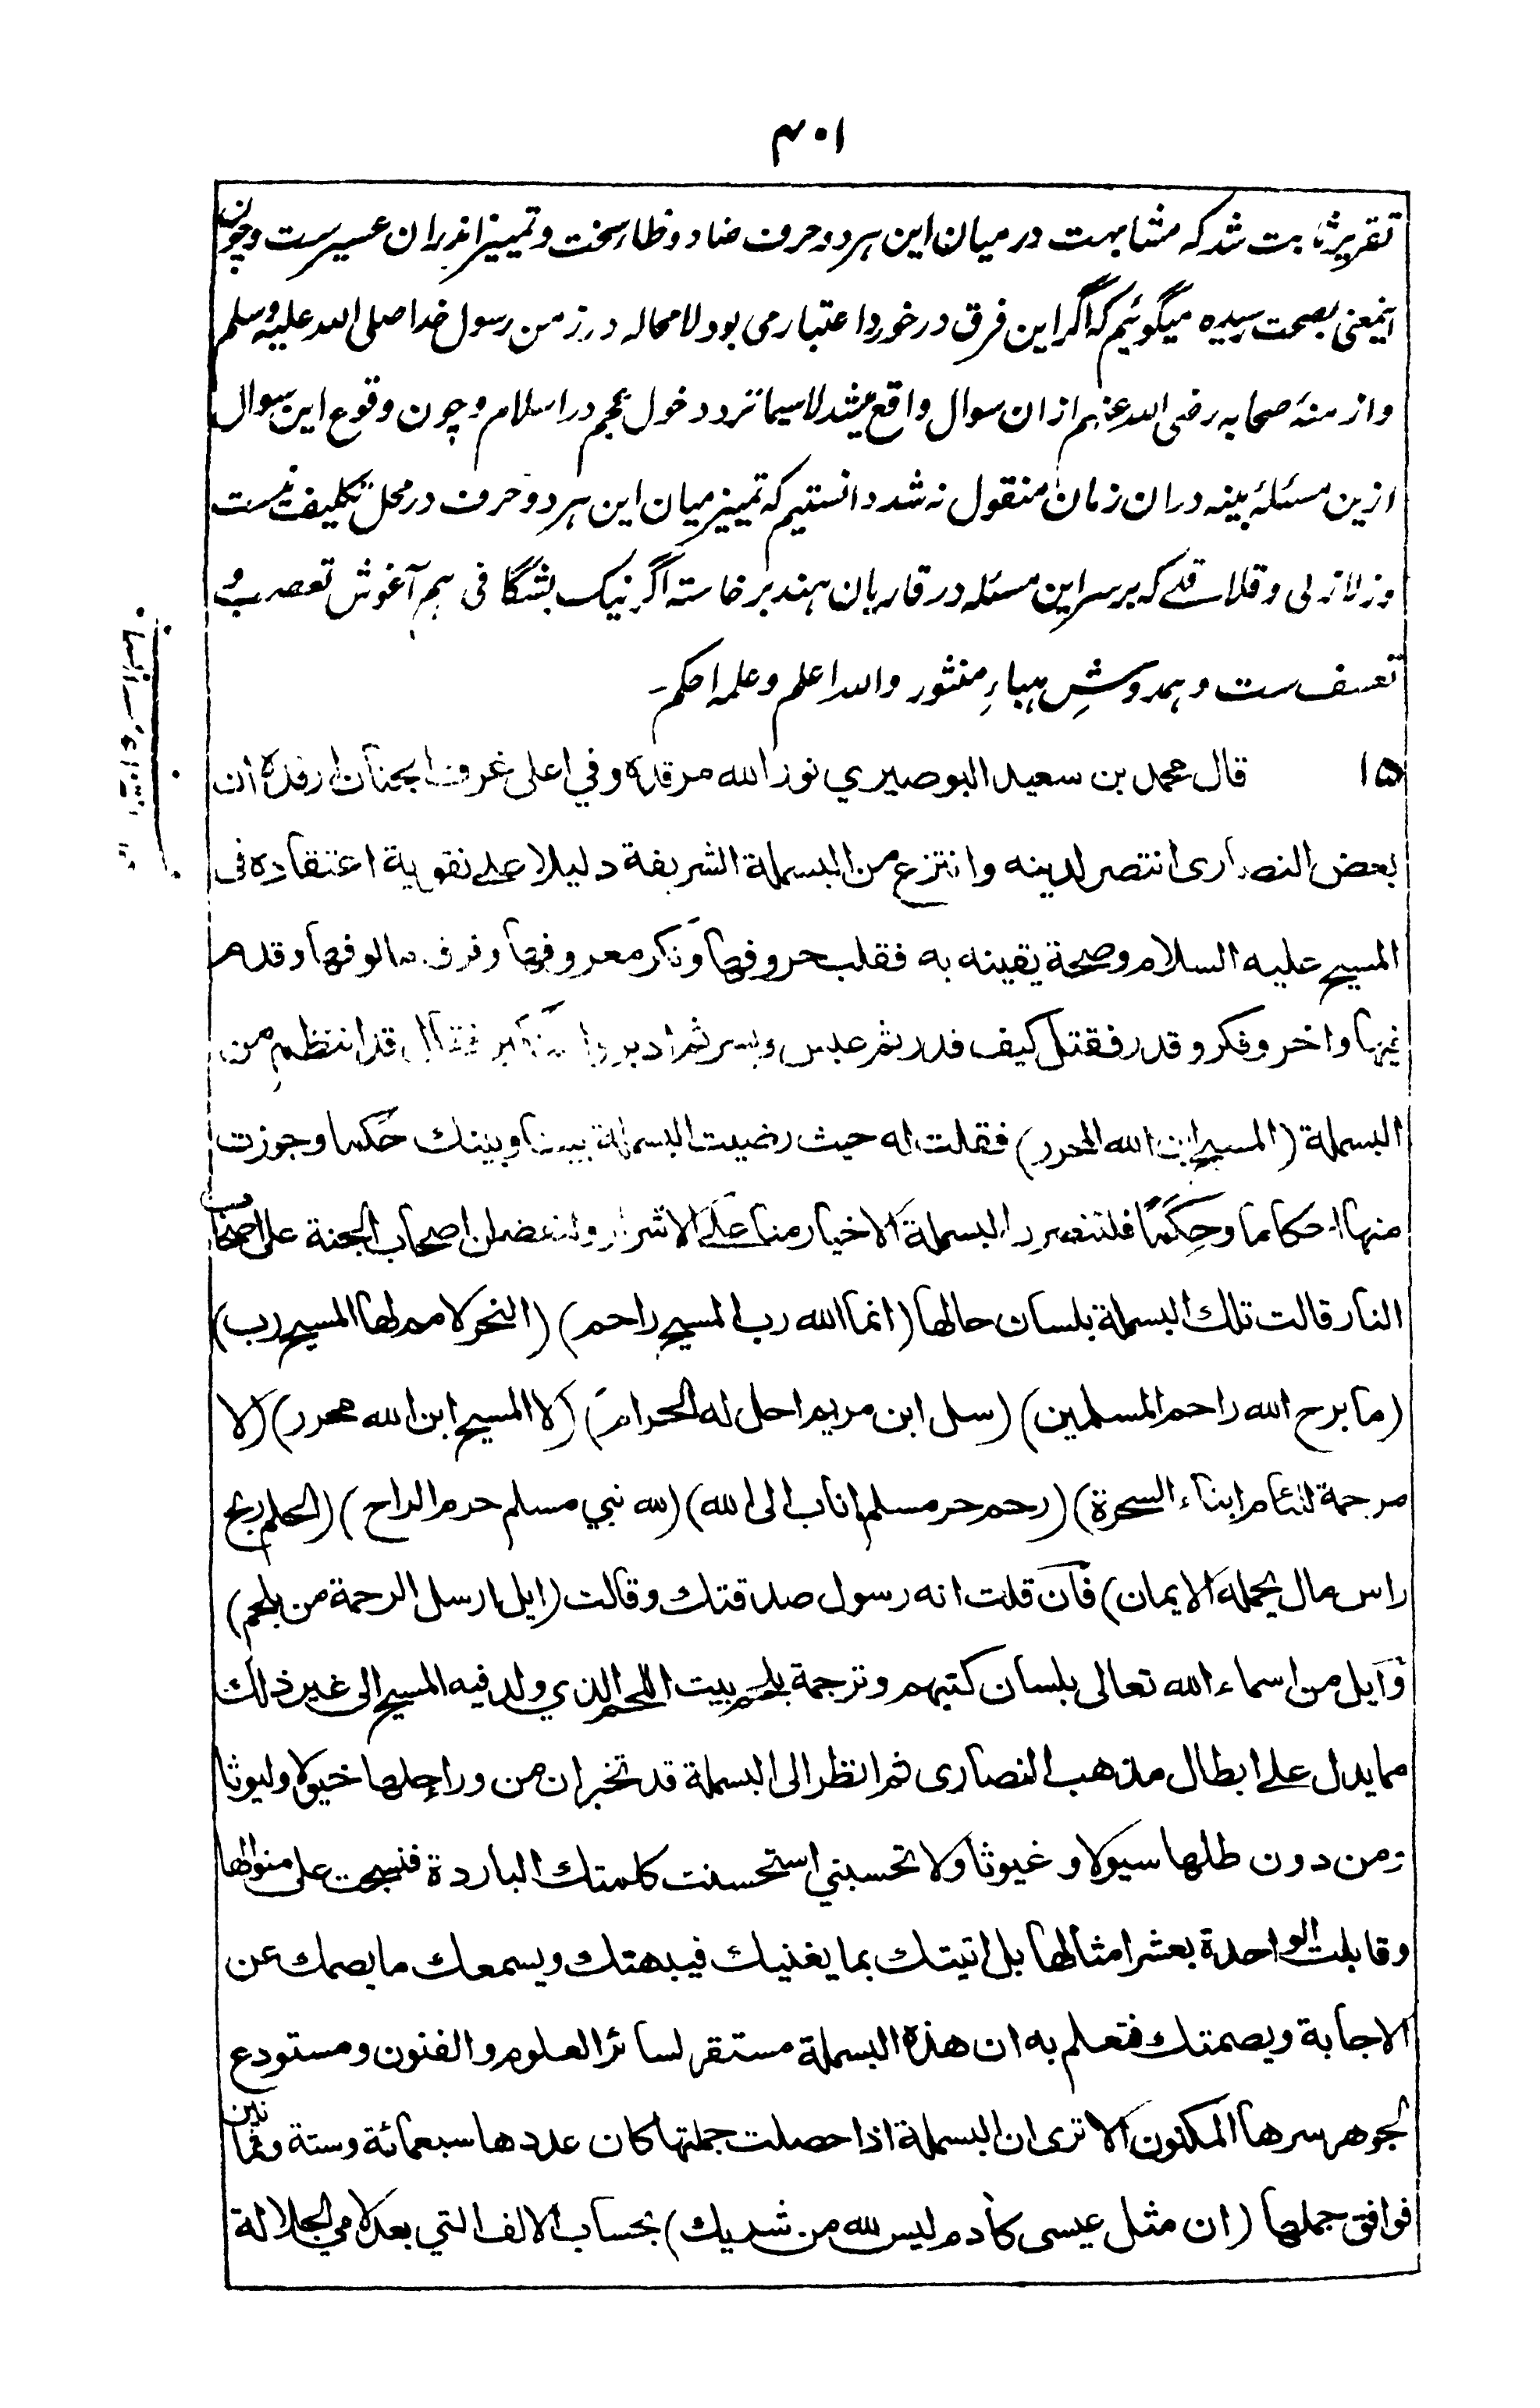 ۴۰۱
تقریر ثابت شد که مشابهت در میان این هر دو حرف ضاد و ظاء سخت و تمییز اندران عسیرست و چون
اینمعنی بصحت رسیده میگوئیم که اگر این فرق در خورد اعتبار می بود لا محاله در زمن رسول خدا صلی الله علیه وسلم
و ازمنهٔ صحابه رضی الله عنهم ازان سوال واقع میشد لاسیما نزد دخول عجم در اسلام و چون وقوع این سوال
ازین مسئلهٔ بینه دران زمان منقول نه شد دانستیم که تمییز میان این هر دو حرف در محل تکلیف نیست
و زلازلی و قلاقلے که بر سر این مسئله در قاریان هند برخاسته اگر نیک بشگافی هم آغوش تعصب و
تعسف ست و همدوشِ هباءِ منثور والله اعلم وعلمه احکم۔
۱۵ قال محمد بن سعيد البوصيري نور الله مرقده وفي اعلى غرف الجنان ارقده ان
بعض النصارى انتصر لدينه وانتزع من البسملة الشريفة دليلا على تقوية اعتقاده فى
المسيح عليه السلام وصحة يقينه به فقلب حروفها ونكر معروفها وفرق مالوفها وقدم
فيها واخر وفكر وقدر فقتل كيف قدر ثم عبس وبسر ثم ادبر واستكبر فقال قد انتظم من
البسملة (المسيح ابن الله المحرر) فقلت له حيث رضيت البسملة بيننا وبينك حكما وجوزت
منها احكاما وحِكَمًا فلتنصرن البسملة الاخيار منا على الاشرار ولتفضلن اصحاب الجنة على اصحاب
النار قالت تلك البسملة بلسان حالها (انما الله رب المسيح راحم) (النحر لامم لها المسيح رب)
(ما برح الله راحم المسلمين) (سل ابن مريم احل له الحرام) (لا المسيح ابن الله محرر) (لا
مرحمة للئام ابناء السحرة) (رحم حر مسلم اناب الى الله) (لله نبي مسلم حرم الراح) (الحلم ربح
راس مال يحمله الايمان) فان قلت انه رسول صدقتك وقالت (ايل ارسل الرحمة من بلحم)
وايل من اسماء الله تعالى بلسان كتبهم وترجمة بلحم بيت اللحم الذي ولد فيه المسيح الى غير ذلك
مما يدل على ابطال مذهب النصارى ثم انظر الى البسملة قد تخبر ان من وراءِ حلها خيولا وليوثا
ومن دون طلها سيولا وغيوثا ولا تحسبني استحسنت كلمتك الباردة فنسجت على منوالها
وقابلت الواحدة بعشر امثالها بل اتيتك بما يغنيك فيبهتك ويسمعك ما يصمك عن
الاجابة ويصمتك فتعلم به ان هذه البسملة مستقر لسائر العلوم والفنون ومستودع
لجوهر سرها المكنون الا ترى ان البسملة اذا حصلت جملتها كان عددها سبعمائة وستة وثمانين
فوافق جملها (ان مثل عيسى كآدم ليس لله من شريك) بحساب الالف التي بعد لامي الجلالة